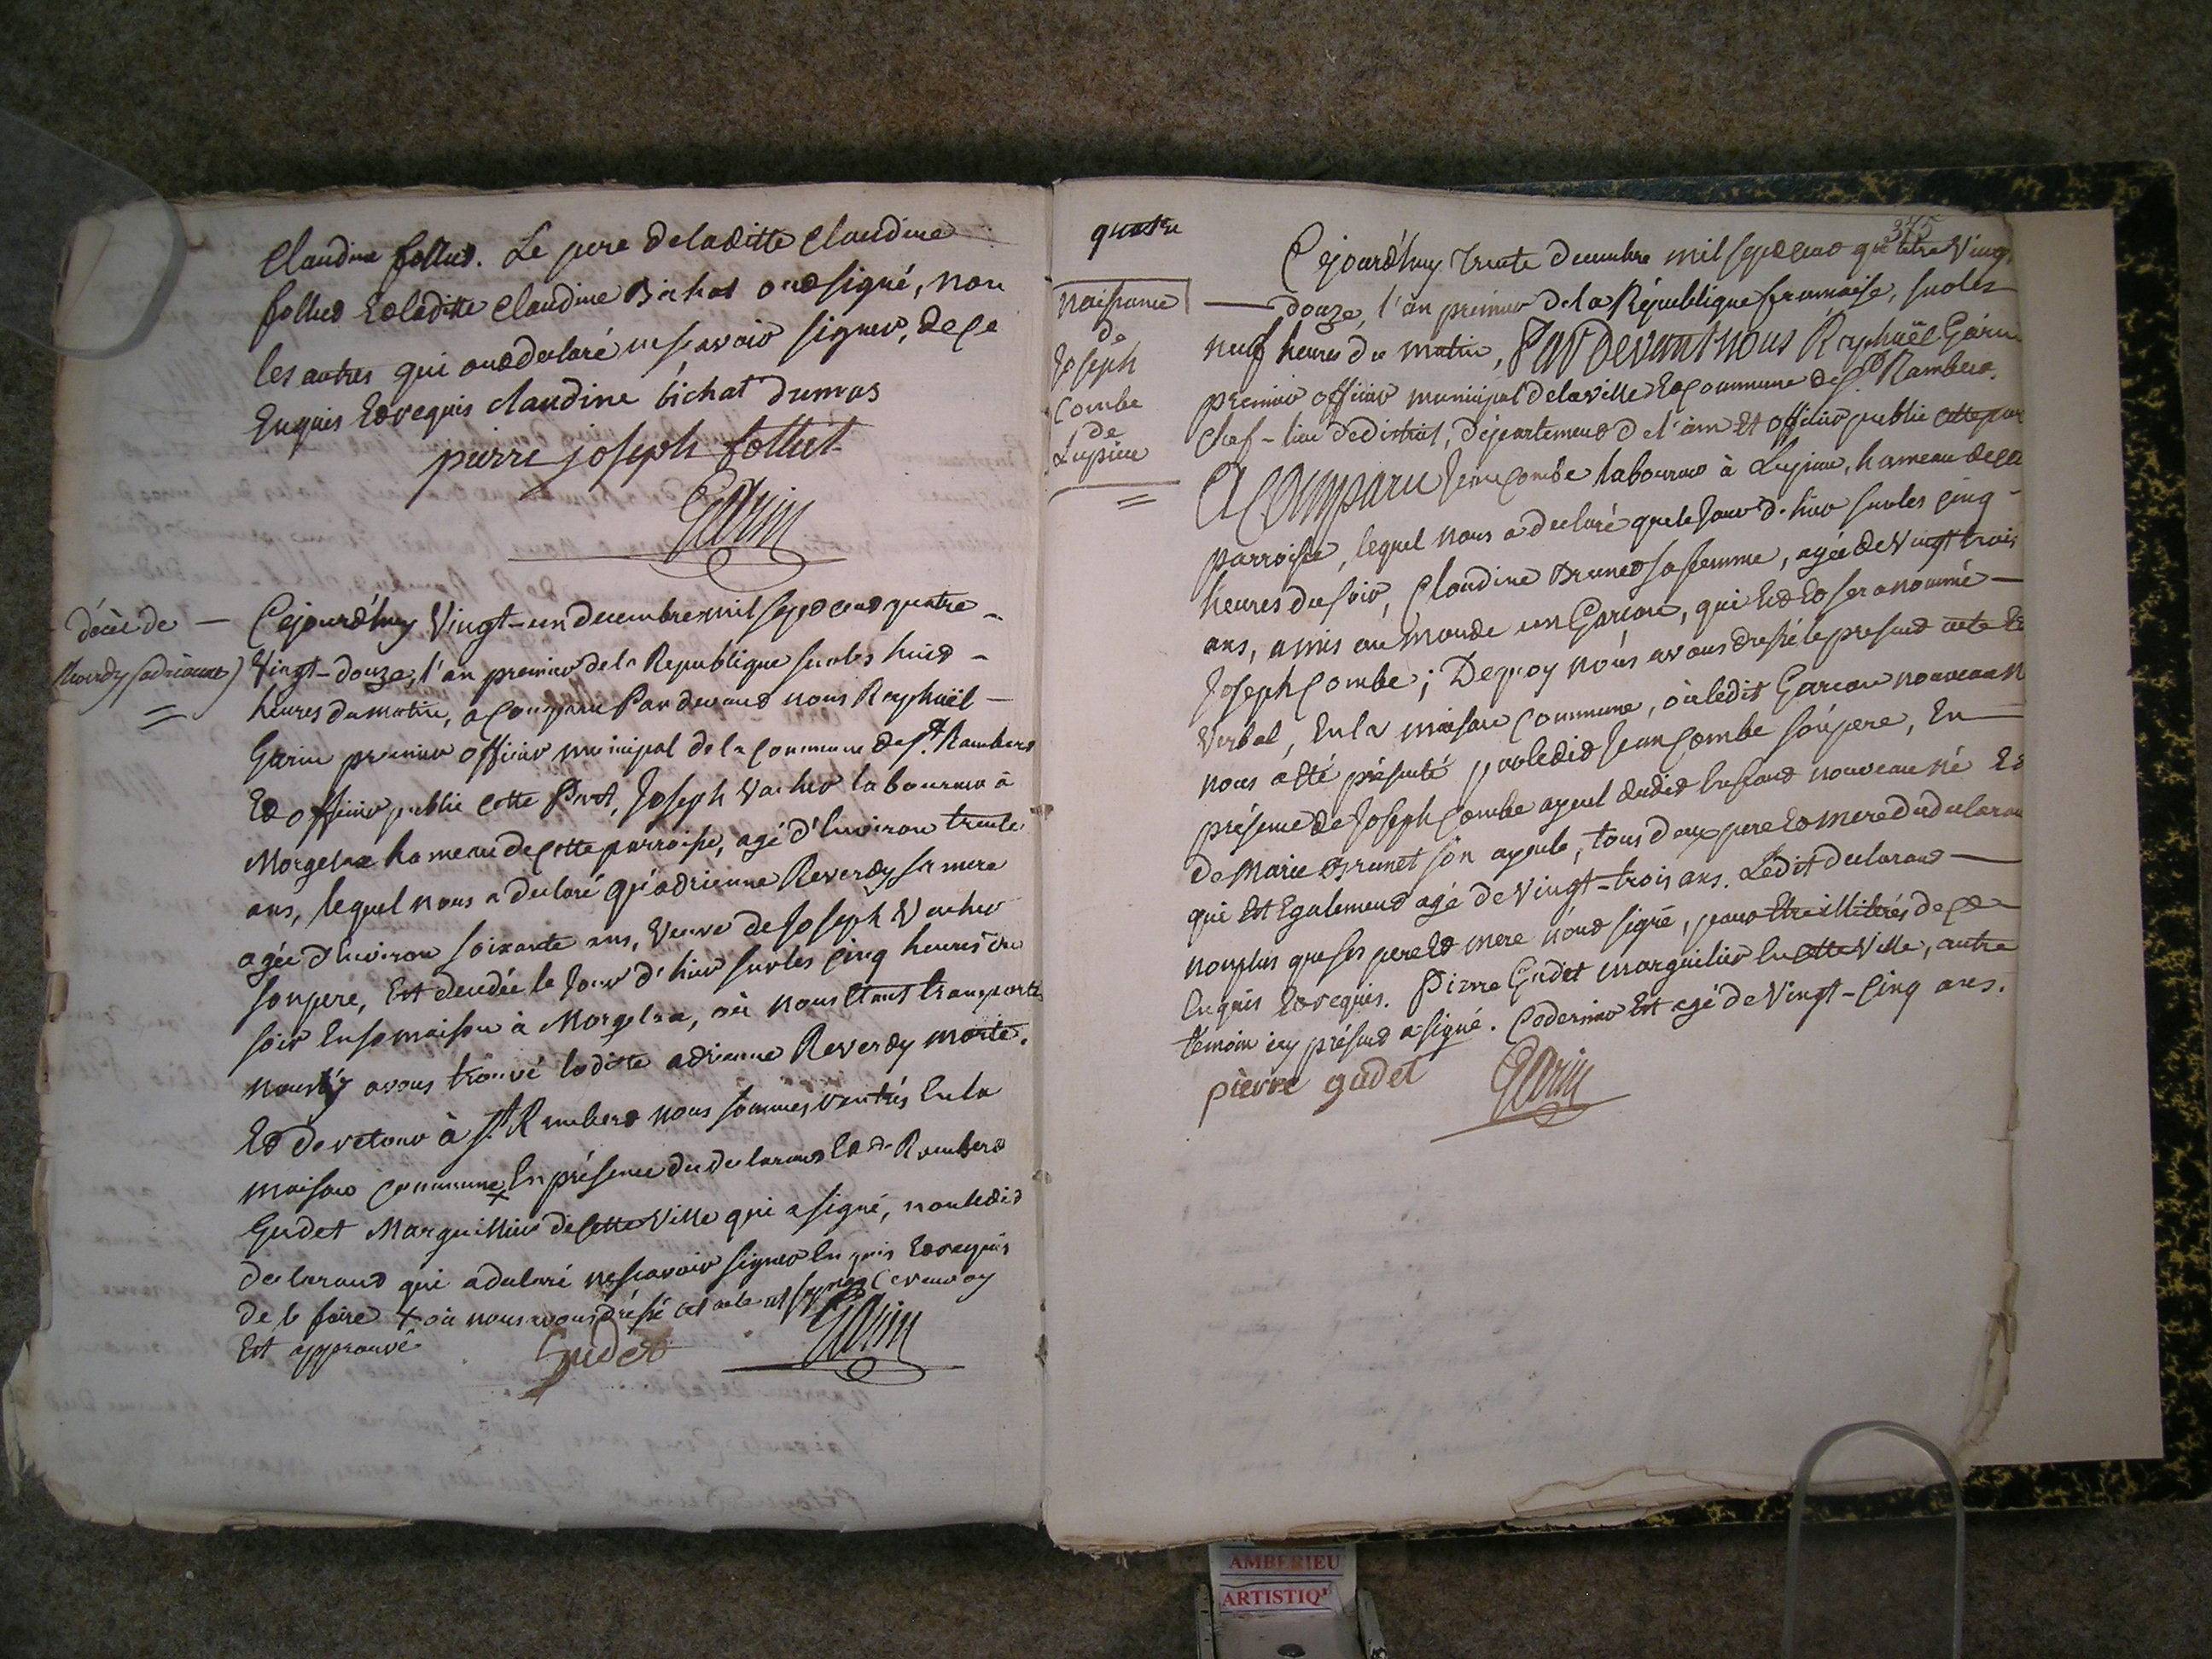 Claudine follud. Le pere deladitte Claudine
follud Et laditte Claudine Bichat ont signé, non
les autres qui ont declaré ne scavoir signer, de ce
Enquis Et requis claudine bichat dumas
pierre joseph follut
Garin
décès de
Reverdy (adrienne)
Cejourd'huy Vingt-un decembre mil sept cent quatre
Vingt-douze, l'an premier de la Republique sur les huit
heures du matin, a Comparu Pardevant nous Raphaël
Garin premier officier municipal de la Commune de St. Rambert
Et officier public cette Part, Joseph Vacher laboureur à
Morgelaz hameau de cette parroisse, agé d'Environ trente
ans, lequel nous a declaré qu'adrienne Reverdy sa mere
agée d'Environ soixante ans, Veuve de Joseph Vacher
son pere, Est decedée le Jour d'hier sur les cinq heures du
soir En sa maison à Morgelaz, où nous Etant transportés
nous y avons trouvé laditte adrienne Reverdy morte.
Et de retour à St. Rambert nous sommes rentrés En la
maison commune x En présence du declarant Et de Rambert
Gudet Marguillier de Cette Ville qui a signé, non ledit
declarant qui a declaré ne scavoir signer Enquis Et requis
de le faire x où nous avons dressé cet acte et ce renvoy
Est approuvé
Gudet
Garin
quatre
375
Naissance
de
Joseph
Combe
de
Lupieu
Cejourd'huy Trente Decembre mil sept cent quatre Vingt
douze, l'an premier de la République francaise, sur les
neuf heures du matin, Par Devant nous Raphaël Garin
premier officier municipal de la ville Et Commune de St. Rambert
Chef-lieu de district, département de l'ain Et officier public cette part
A Comparu Jean Combe laboureur à Lupieu, hameau de cette
parroisse, lequel nous a declaré que le Jour d'hier sur les cinq
heures du soir, Claudine Brunet sa femme, agée de Vingt trois
ans, a mis au monde un Garcon, qui Est Et sera nommé
Joseph Combe; Dequoy nous avons dressé le present acte Et
Verbal, En la maison Commune, où ledit Garcon nouveau né
nous a Eté présenté par ledit Jean Combe son pere, En
présence de Joseph Combe ayeul dudit Enfant nouveau né Et
de Marie Brunet son ayeule, tous deux pere Et mere du declarant
qui Est Egalement agé de Vingt-trois ans. Ledit declarant
non plus que ses pere Et mere n'ont signé, pour Etre illitérés de ce
Enquis Et requis. Pierre Gudet marguilier En cette Ville, autre
témoin icy présent a signé. Ce dernier Est agé de Vingt-Cinq ans.
pierre gudet
Garin
AMBERIEU
ARTISTIQ'